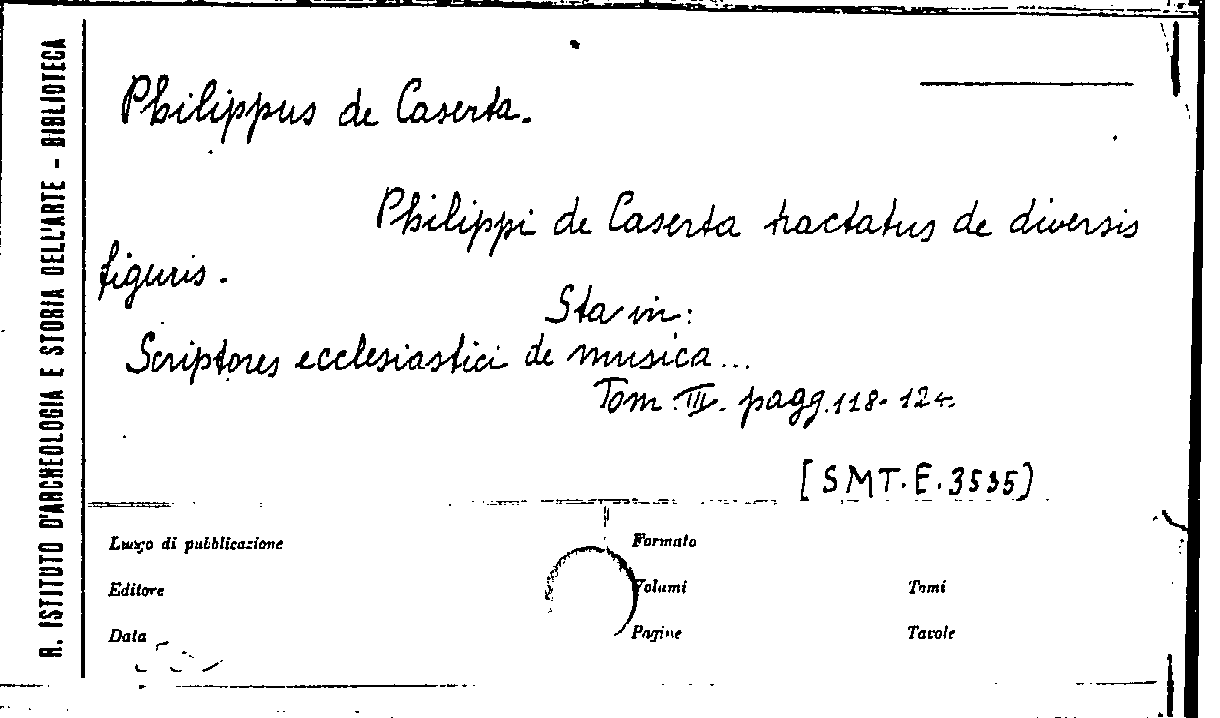 R. ISTITUTO D'ARCHEOLOGIA E STORIA DELL'ARTE - BIBLIOTECA
Philippus de Caserta.
Philippi de Caserta tractatus de diversis
figuris.
Sta in:
Scriptores ecclesiastici de musica...
Tom. III. pagg. 118-124.
[SMT.E.3535)
Luogo di pubblicazione
Formato
Editore
Volumi
Tomi
Data
Pagine
Tavole